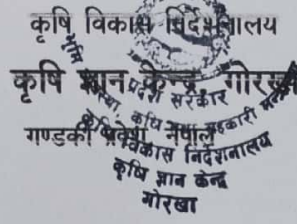 कृषि विकास निर्देशनालय
कृषि ज्ञान केन्द्र गोरखा
गण्डकी प्रदेश नेपाल
प्रदेश सरकार
कृषि तथा सहकारी
कृषि विकास निर्देशनालय
कृषि ज्ञान केन्द्र
गोरखा